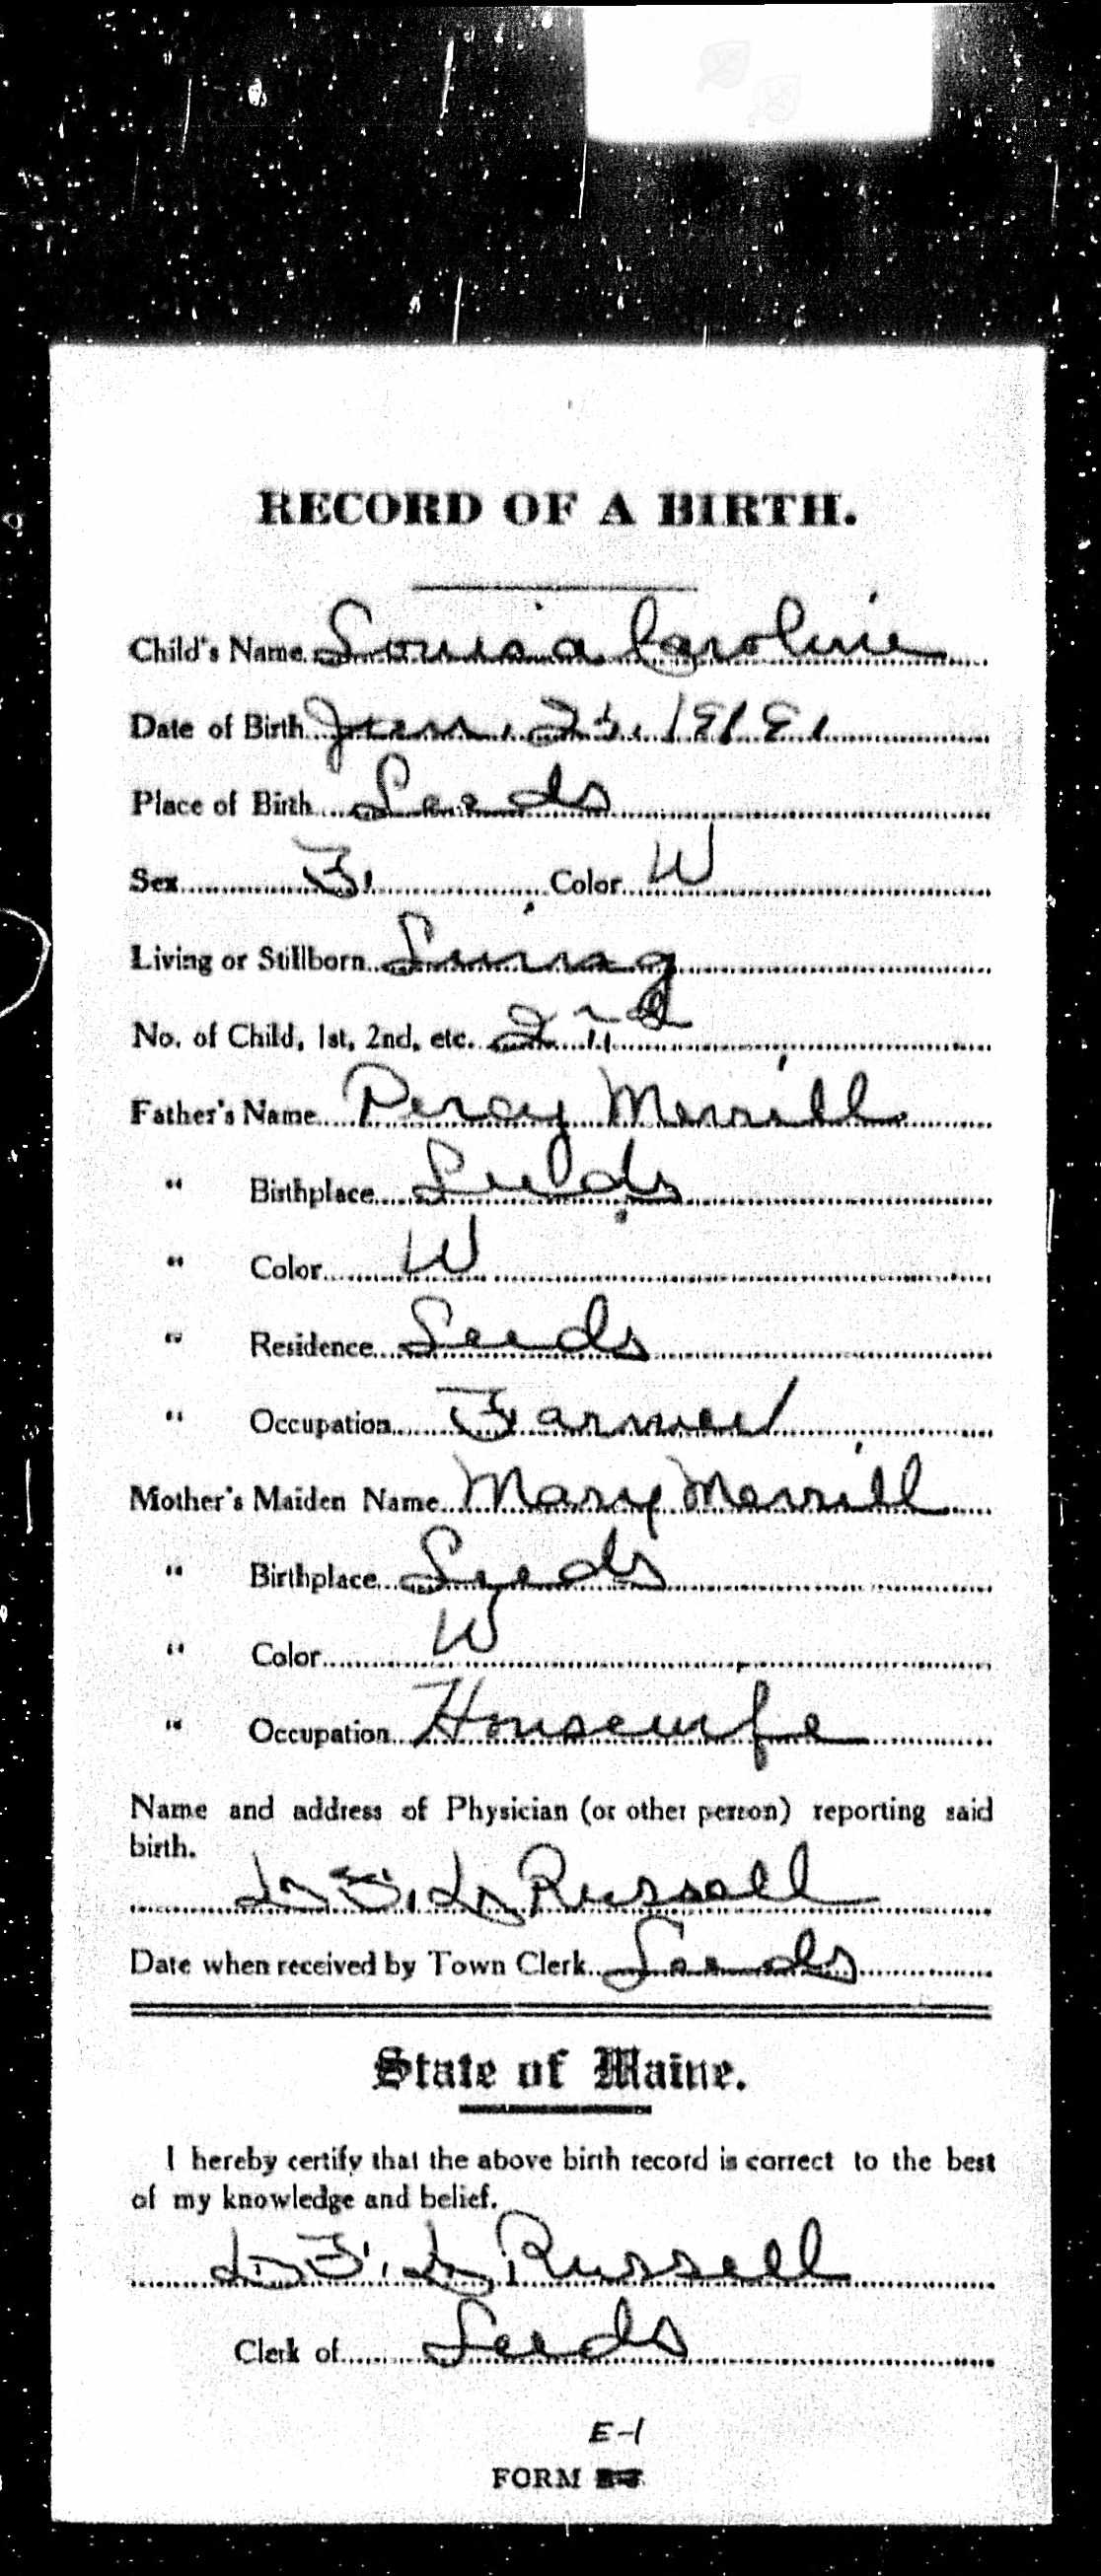 RECORD OF A BIRTH.
Child's Name Louisa Caroline
Date of Birth 23, 1919
Place of Birth Leeds
Sex F. Color W
Living or Stillborn Living
No. of Child, 1st, 2nd, etc. 2nd
Father's Name Percy Merrill
" Birthplace Leeds
" Color W
" Residence Leeds
" Occupation Farmer
Mother's Maiden Name Mary Merrill
" Birthplace Leeds
" Color W
" Occupation Housewife
Name and address of Physician (or other person) reporting said
birth.
Russell
Date when received by Town Clerk Leeds
State of Maine.
I hereby certify that the above birth record is correct to the best
of my knowledge and belief.
Russell
Clerk of Leeds
E-1
FORM